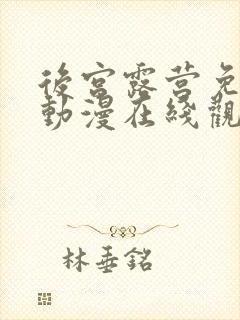 後宮露营免
動漫在綫觀
林垂銘